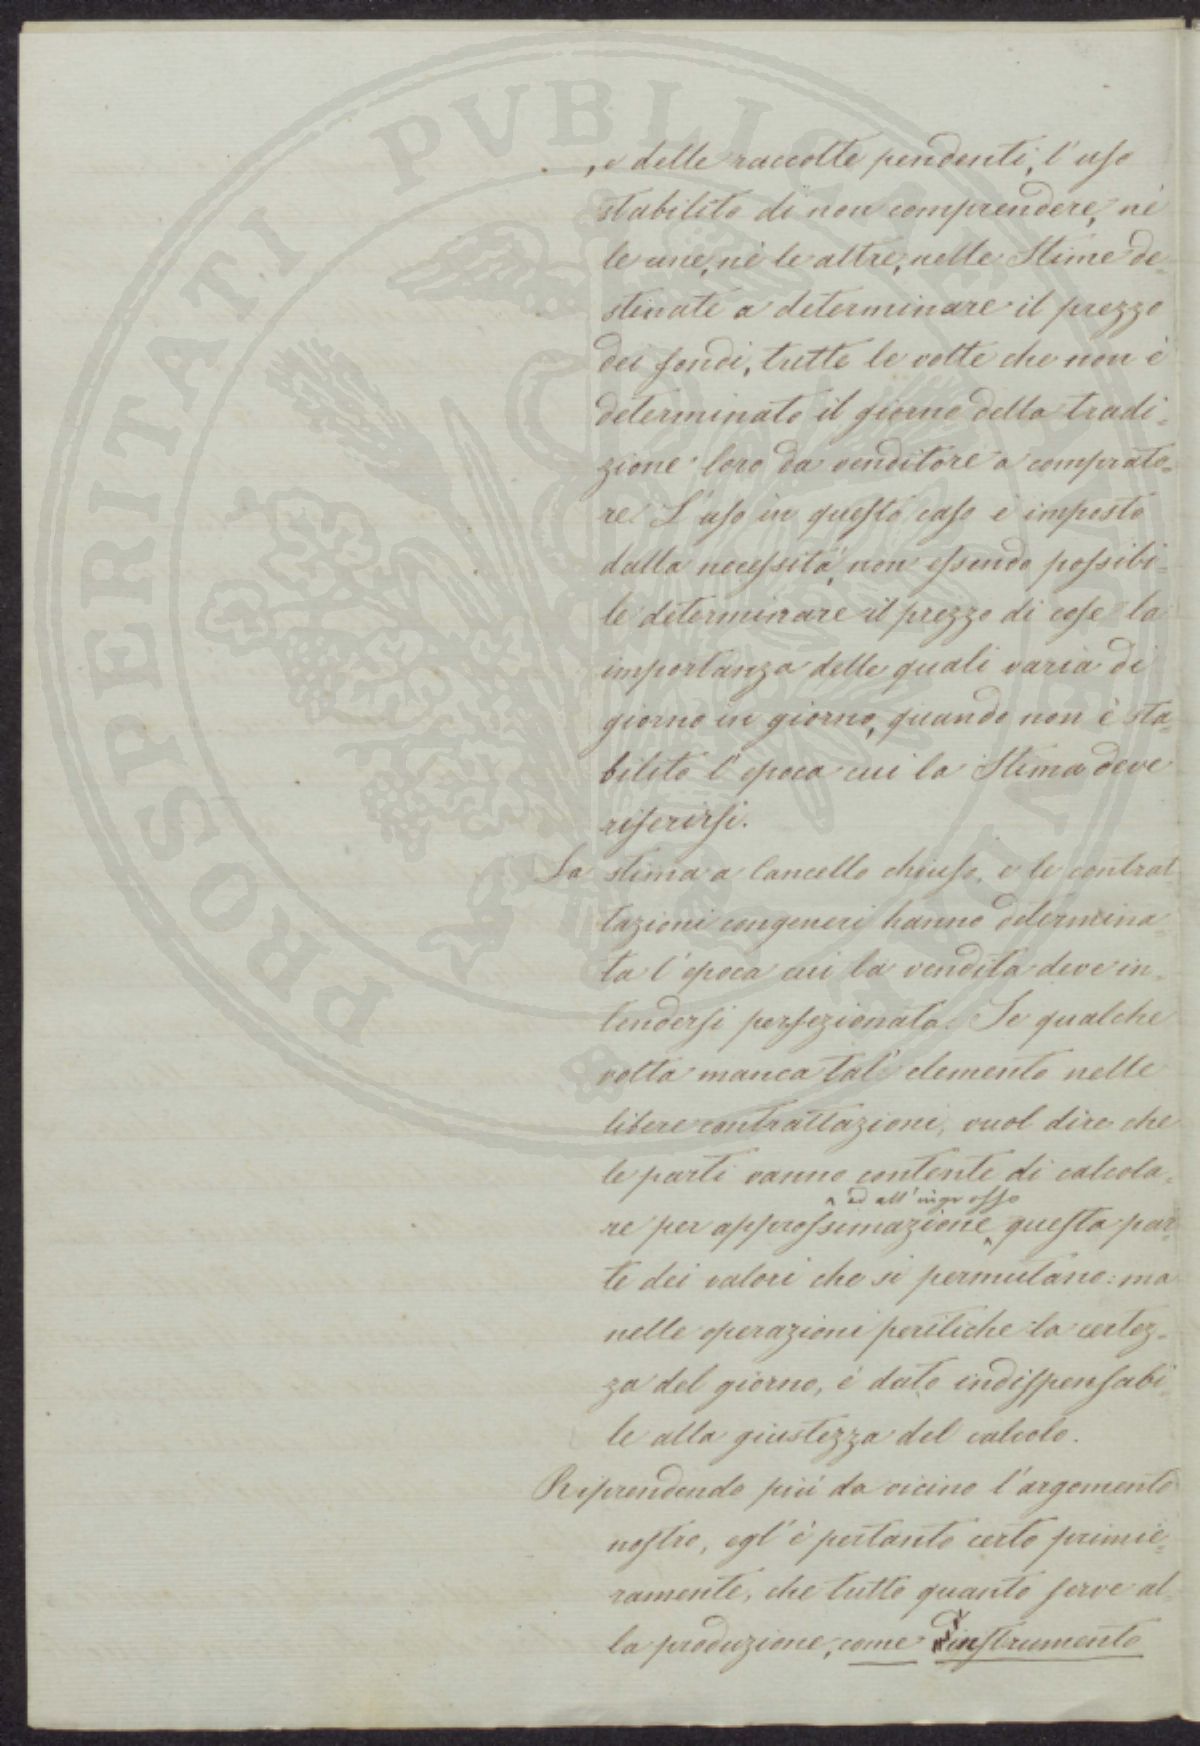 , e delle raccolte pendenti, l'uso
stabilito di non comprendere, nè
le une, nè le altre, nelle Stime de-
stinate a determinare il prezzo
dei fondi, tutte le volte che non è
determinato il giorno della tradi-
zione loro da venditore a comprato-
re. L'uso in questo caso è imposto
dalla necessità, non essendo possibi-
le determinare il prezzo di cose la
importanza delle quali varia di
giorno in giorno, quando non è sta-
bilito l'epoca cui la Stima deve
riferirsi.
La stima a Cancello chiuso, e le contrat-
tazioni congeneri hanno determina-
ta l'epoca cui la vendita deve in-
tendersi perfezionata. Se qualche
volta manca tal' elemento nelle
libere contrattazioni, vuol dire che
le parti vanno contente di calcola-
ed all'ingrosso
re per approssimazione questa par-
te dei valori che si permutano: ma
nelle operazioni peritiche la certez-
za del giorno, è dato indispensabi-
le alla giustezza del calcolo.
Riprendendo più da vicino l'argomento
nostro, egl' è pertanto certo primie-
ramente, che tutto quanto serve al-
la produzione, come instrumento
PROSPERITATI PVBLICAE